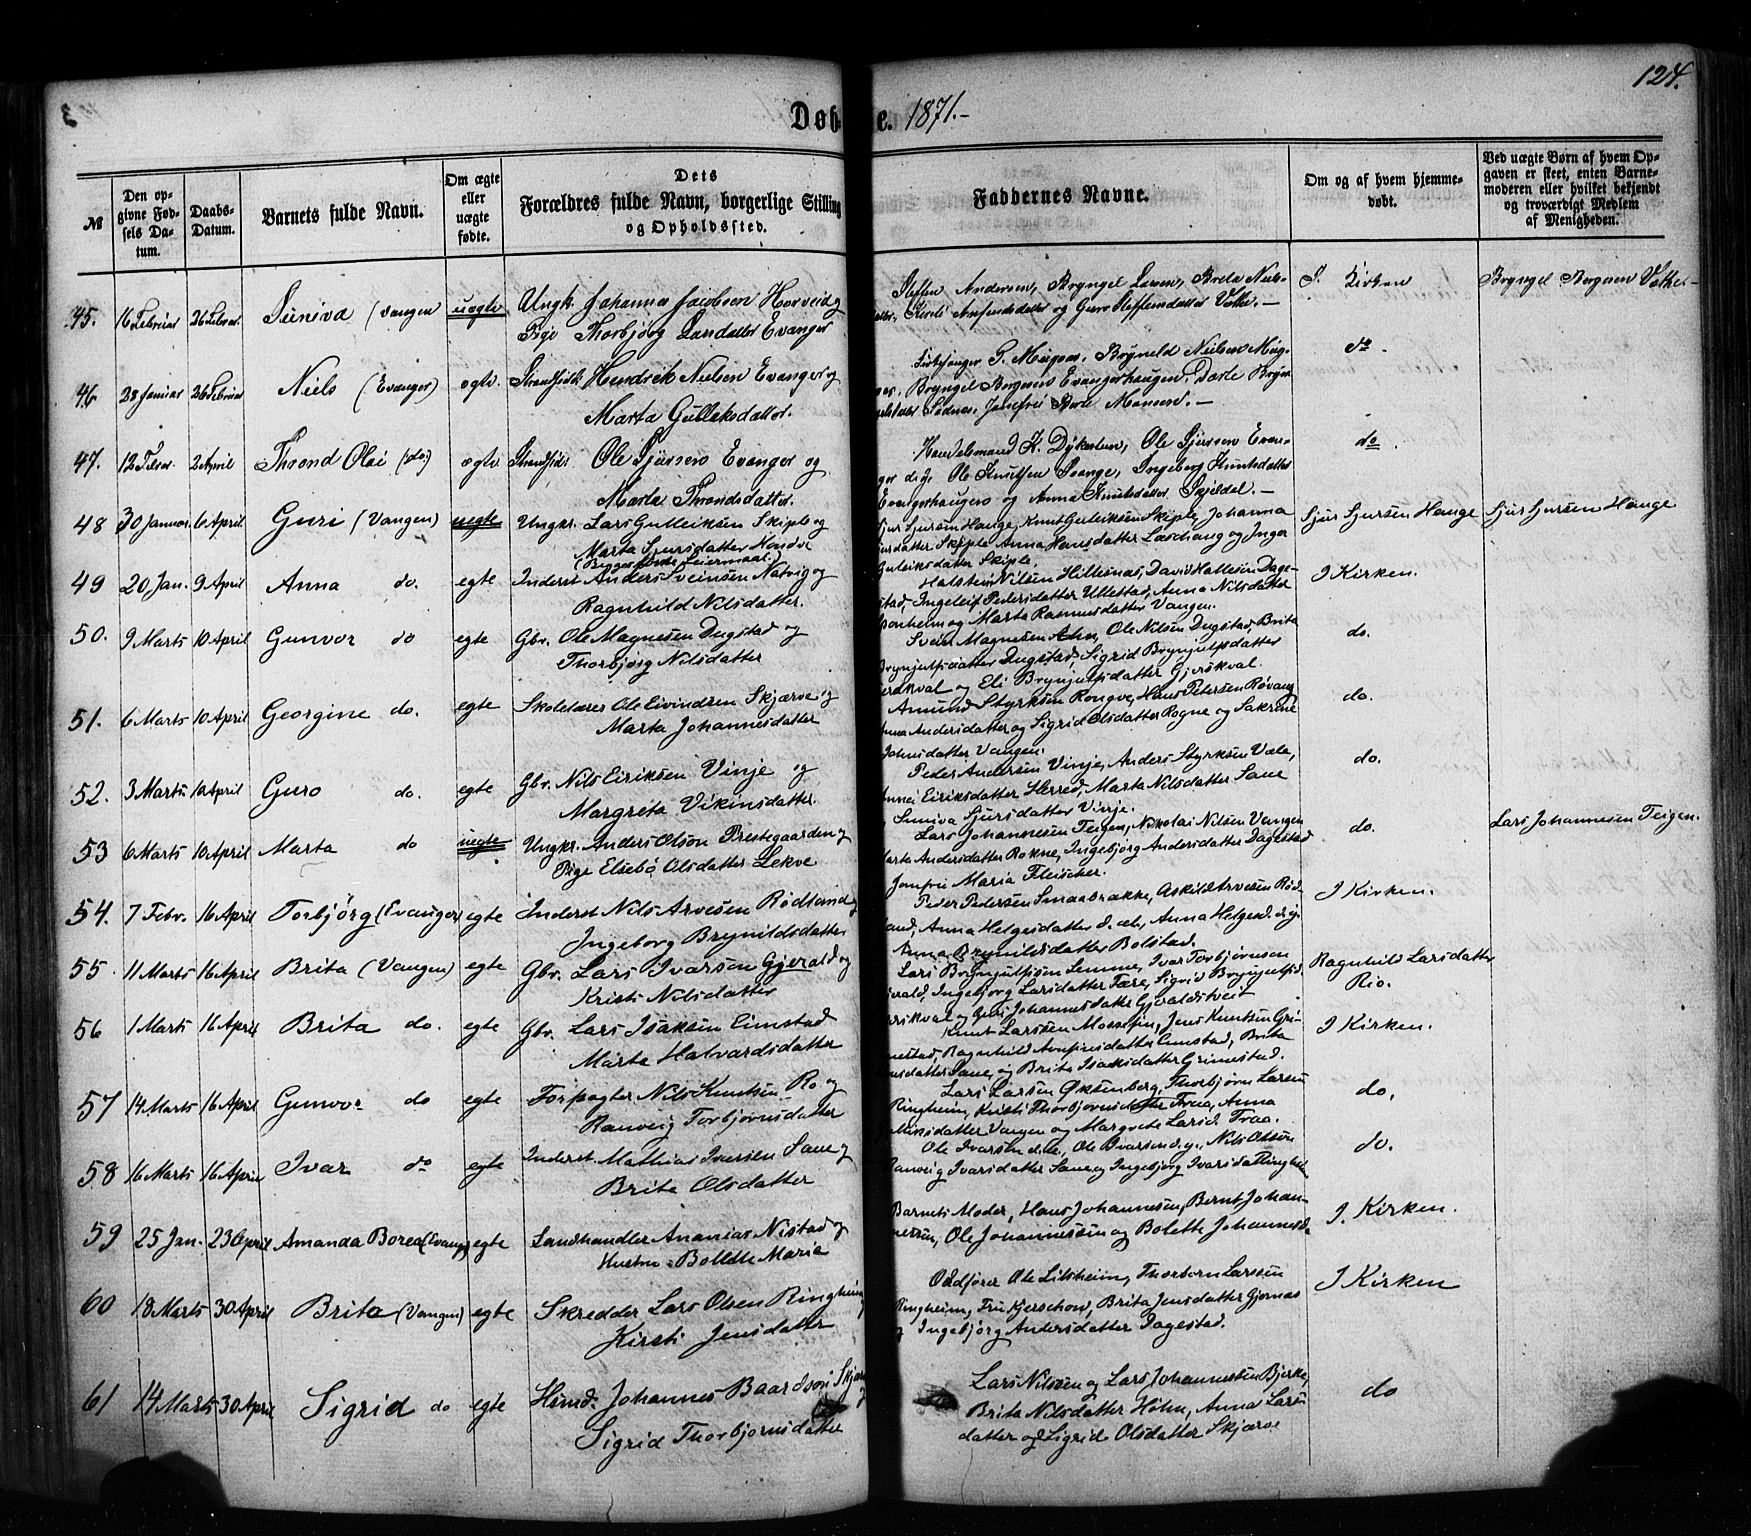 124.
Døb e. 1871.-
№ | Den opgivne Fødsels Datum. | Daabs-Datum. | Barnets fulde Navn. | Om ægte eller uægte fødte. | Dets Forældres fulde Navn, borgerlige Stilling og Opholdssted. | Faddernes Navne. | Om og af hvem hjemmedøbt. | Ved uægte Børn af hvem Opgaven er skeet, enten Barnemoderen eller hvilket bekjendt og troværdigt Medlem af Menigheden.
45. 16 Februar 26 Februar Suniva (Vangen uægte Ungk. Johannes Jacobsen Horveid og
Pige Thorbjörg Larsdatter Evanger
Steffen Andersen, Bryngel Larsen, Brita Niels-
datter, Kirsti Anfindsdatter og Guro Steffensdatter Vethe. -
I Kirken
Bryngel Borgesen Vethe -
46. 28 Januar 26 Februar Niels (Evanger) ægte. Strandsidd. Hendrick Nielsen Evanger og
Marta Gulleksdatter.
Kirkesanger G. Mugaas, Brynild Nielsen Mug-
aas, Bryngel Borgesen Evangerhaugen, Dorte Bryn-
Jomfru Berte Monsen. -
do.
47. 12 Febr. 2 April Thrond Olai (do) ægte Strandsidd. Ole Sjursen Evanger og
Marta Throndsdatter.
Handelsmand K. Dykesten, Ole Sjursen Evan-
ger d.y. Ole Knutsen Svange, Ingeborg Knutsdatter
Evangerhaugen og Anna Knutsdatter Skjeldal. -
do.
48 30 Januar 6 April Guri (Vangen) uegte Ungkr. Lars Gulleiksen Skiple og
Marta Sjursdatter Hondve
(Begges første Leiermaal)
Sjur Sjursen Hauge, Knut Gulleiksen Skiple, Johanna
Sjursdatter Skiple Anna Hansdatter Lasehaug og Inger
Gulleiksdatter Skiple.
Sjur Sjursen Hauge
Sjur Sjursen Hauge
49 20 Jan. 9 April Anna do. egte Inderst Anders Sveinsen Nætvig og
Ragnhild Nilsdatter.
Halstein Nilsen Hillesnas, David Hallesen Dage-
stad, Ingeleif Pedersdatter Ullestad, Anna Nilsdatter
Bonheim og Marta Rasmusdatter Vangen.
I Kirken.
50. 9 Marts 10 April Gunvor do egte Gbr. Ole Magnesen Dugstad og
Thorbjörg Nilsdatter
Svein Magnesen Ahn, Ole Nilsen Dugstad, Brita
Brynjulfsdatter Dugstad, Sigrid Brynjulfsdatter
Gjerskval og Eli Brynjulfsdatter Gjerskval.
do.
51. 6 Marts 10 April Georgine do. egte Skolelærer Ole Eivindsen Skjærve og
Marta Johannesdatter
Amund Styrksen Rongve, Hans Petersen Røvang
Anna Andersdatter og Sigrid Olsdatter Rogne og Sakrine
Johnsdatter Vangen.
do.
52. 3 Marts 10 April Guro do. egte Gbr. Nils Eiriksen Vinje og
Margreta Vikinsdatter
Peder Andersen Vinje, Anders Styrksen Væle,
Annei Eiriksdatter Herred, Marta Nilsdatter Saue
Suniva Sjursdatter Vinje.
do.
53 6 Marts 10 April Marta do uegte Ungkr. Anders Olson Prestegaarden og
Pige Elsebö Olsdatter Lekve
Lars Johannesen Teigen, Nikolai Nilsen Vangen
Marta Andersdatter Rokne, Ingebjörg Andersdatter Dagestad
Jomfru Maria Fleischer.
do.
Lars Johannesen Teigen.
54. 7 Febr. 16 April Torbjörg (Evanger) egte Inderst Nils Arvesen Rödland og
Ingeborg Brynildsdatter
Peder Pedersen Smaabrække, Askild Arvesen Röd-
land, Anna Helgesdatter d. æl., Anna Helgesd. d. y.
Anna Brynildsdatter Bolstad.
I Kirken.
55. 11 Marts 16 April Brita (Vangen) egte Gbr. Lars Ivarsen Gjerald og
Kristi Nilsdatter
Lars Brynjulfsen Lemme, Ivar Torbjörnsen
Gjerald, Ingebjörg Larsdatter Fære, Sigrid Brynjulfsd.
Gjerskval og Guri Johannesdatter Gjeraldstveit
Ragnhild Larsdatter
Rio.
56 1 Marts 16 April Brita do. egte Gbr. Lars Isaksen Eimstad
Marta Halvardsdatter
Knut Larssen Mossefin, Jens Knutsen Gri-
mestad, Ragnhild Arnfinsdatter Eimstad, Brita
datter Saue, og Brita Isaksdatter Grimestad.
I Kirken.
57 14 Marts 16 April Gunvor do egte Forpagter Nils Knutsen Ro og
Ranveig Torbjörnsdatter
Lars Larsen Øksenberg, Thorbjörn Larsen
Ringheim, Kristi Thorbjörnsdatter Traa, Anna
Eiriksdatter Vangen og Margrete Larsd. Traa.
do.
58 16 Marts 16 April Ivar do egte Inderst Mathias Iversen Saue og
Brite Olsdatter
Ole Ivarsen d.æ., Ole Ivarsen d.y., Nils Olsön
Ranveig Ivarsdatter Saue og Ingebjörg Ivarsdat. Ringheim
do.
59 25 Jan. 23 April Amanda Borea (Evang.) egte Landhandler Ananias Nistad og
Hustru Bolette Marie
Barnets Moder, Hans Johannesen, Bernt Johan-
nessen, Ole Johannessen og Bolette Johannesd.
I. Kirken.
60 18 Marts 30 April Brita (Vangen) egte Skredder Lars Olsen Ringheim
Kirsti Jensdatter
Oddfører Ole Lilsheim, Thorbern Larssen
Ringheim, Fru Kjerschow, Brita Jensdatter Gjernes
og Ingebjörg Andersdatter Dagestad.
I Kirken
61 14 Marts 30 April Sigrid do egte Hsmd. Johannes Baardson Skjær
Sigrid Thorbjörnsdatter
Lars Nilssen og Lars Johannessen Bjerke,
Brita Nilsdatter Höhn, Anna Lars-
datter og Sigrid Olsdatter Skjærve
do